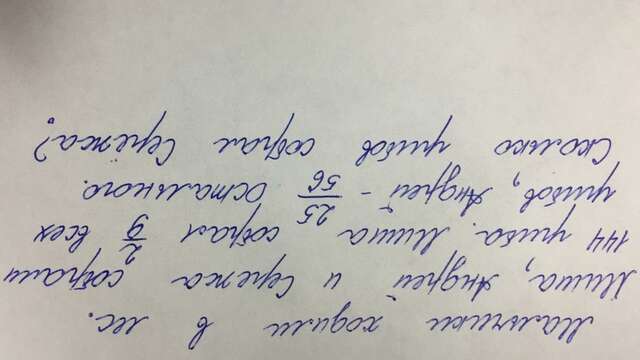 Мальчики ходили в лес.
Миша, Андрей и Серёжа собрали
144 гриба. Миша собрал 2/9 всех
грибов, Андрей - 25/56 остального.
Сколько грибов собрал Серёжа?